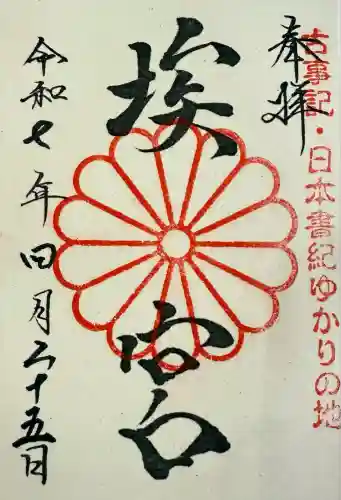 古事記・日本書紀ゆかりの地
奉拝
埃宮
令和七年四月二十五日